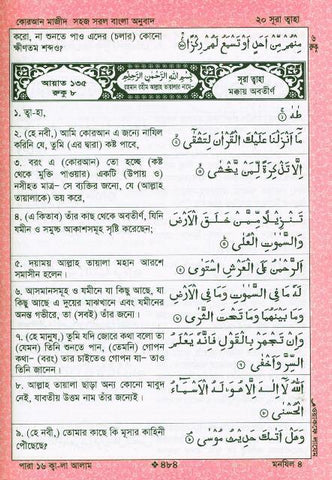 কোরআন মাজীদ সহজ সরল বাংলা অনুবাদ
২০ সূরা ত্বাহা
করো, না শুনতে পাও এদের (চলার) কোনো
ক্ষীণতম শব্দও?
مِنْهُمْ مِّنْ أَحَدٍ أَوْ تَسْمَعُ لَهُمْ رِكْزًا
আয়াত ১৩৫
রুকু ৮
بِسْمِ اللهِ الرَّحْمٰنِ الرَّحِيْمِ
রহমান রহীম আল্লাহ তায়ালার নামে-
সূরা ত্বাহা
মক্কায় অবতীর্ণ
১. ত্বা-হা,
طٰهٰ
২. (হে নবী,) আমি কোরআন এ জন্যে নাযিল
করিনি যে, তুমি (এর দ্বারা) কষ্ট পাবে,
مَا أَنْزَلْنَا عَلَيْكَ الْقُرْاٰنَ لِتَشْقٰى
৩. বরং এ (কোরআন) তো হচ্ছে (কষ্ট
থেকে মুক্তি পাওয়ার) একটি (উপায় ও)
নসীহত মাত্র- সে ব্যক্তির জন্যে, যে (আল্লাহ
তায়ালাকে) ভয় করে,
إِلَّا تَذْكِرَةً لِّمَنْ يَّخْشٰى
৪. (এ কিতাব) তাঁর কাছ থেকে অবতীর্ণ, যিনি
যমীন ও সমুচ্চ আকাশসমূহ সৃষ্টি করেছেন;
تَنْزِيْلًا مِّمَّنْ خَلَقَ الْأَرْضَ
وَالسَّمٰوٰتِ الْعُلٰى
৫. দয়াময় আল্লাহ তায়ালা মহান আরশে
সমাসীন হলেন।
اَلرَّحْمٰنُ عَلَى الْعَرْشِ اسْتَوٰى
৬. আসমানসমূহ ও যমীনে যা কিছু আছে, যা
কিছু আছে এ দুয়ের মাঝখানে এবং যমীনের
অনন্ত গভীরে, তা (সবই) তাঁর জন্যে।
لَهُ مَا فِي السَّمٰوٰتِ وَمَا فِي الْأَرْضِ
وَمَا بَيْنَهُمَا وَمَا تَحْتَ الثَّرٰى
৭. (হে মানুষ,) তুমি যদি জোরে কথা বলো তা
(যেমন) তিনি শুনতে পান, (তেমনি) গোপন
কথা- (বরং) তার চাইতেও গোপন যা- তাও
তিনি জানেন।
وَإِنْ تَجْهَرْ بِالْقَوْلِ فَإِنَّهُ يَعْلَمُ
السِّرَّ وَأَخْفٰى
৮. আল্লাহ তায়ালা ছাড়া অন্য কোনো মাবুদ
নেই, যাবতীয় উত্তম নাম তাঁর জন্যেই।
اَللهُ لَا إِلٰهَ إِلَّا هُوَ لَهُ الْأَسْمَاءُ
الْحُسْنٰى
৯. (হে নবী,) তোমার কাছে কি মূসার কাহিনী
পৌঁছেছে?
وَهَلْ أَتٰكَ حَدِيْثُ مُوْسٰى
পারা ১৬ ক্বা-লা আলাম
৪৮৪
মনযিল ৪